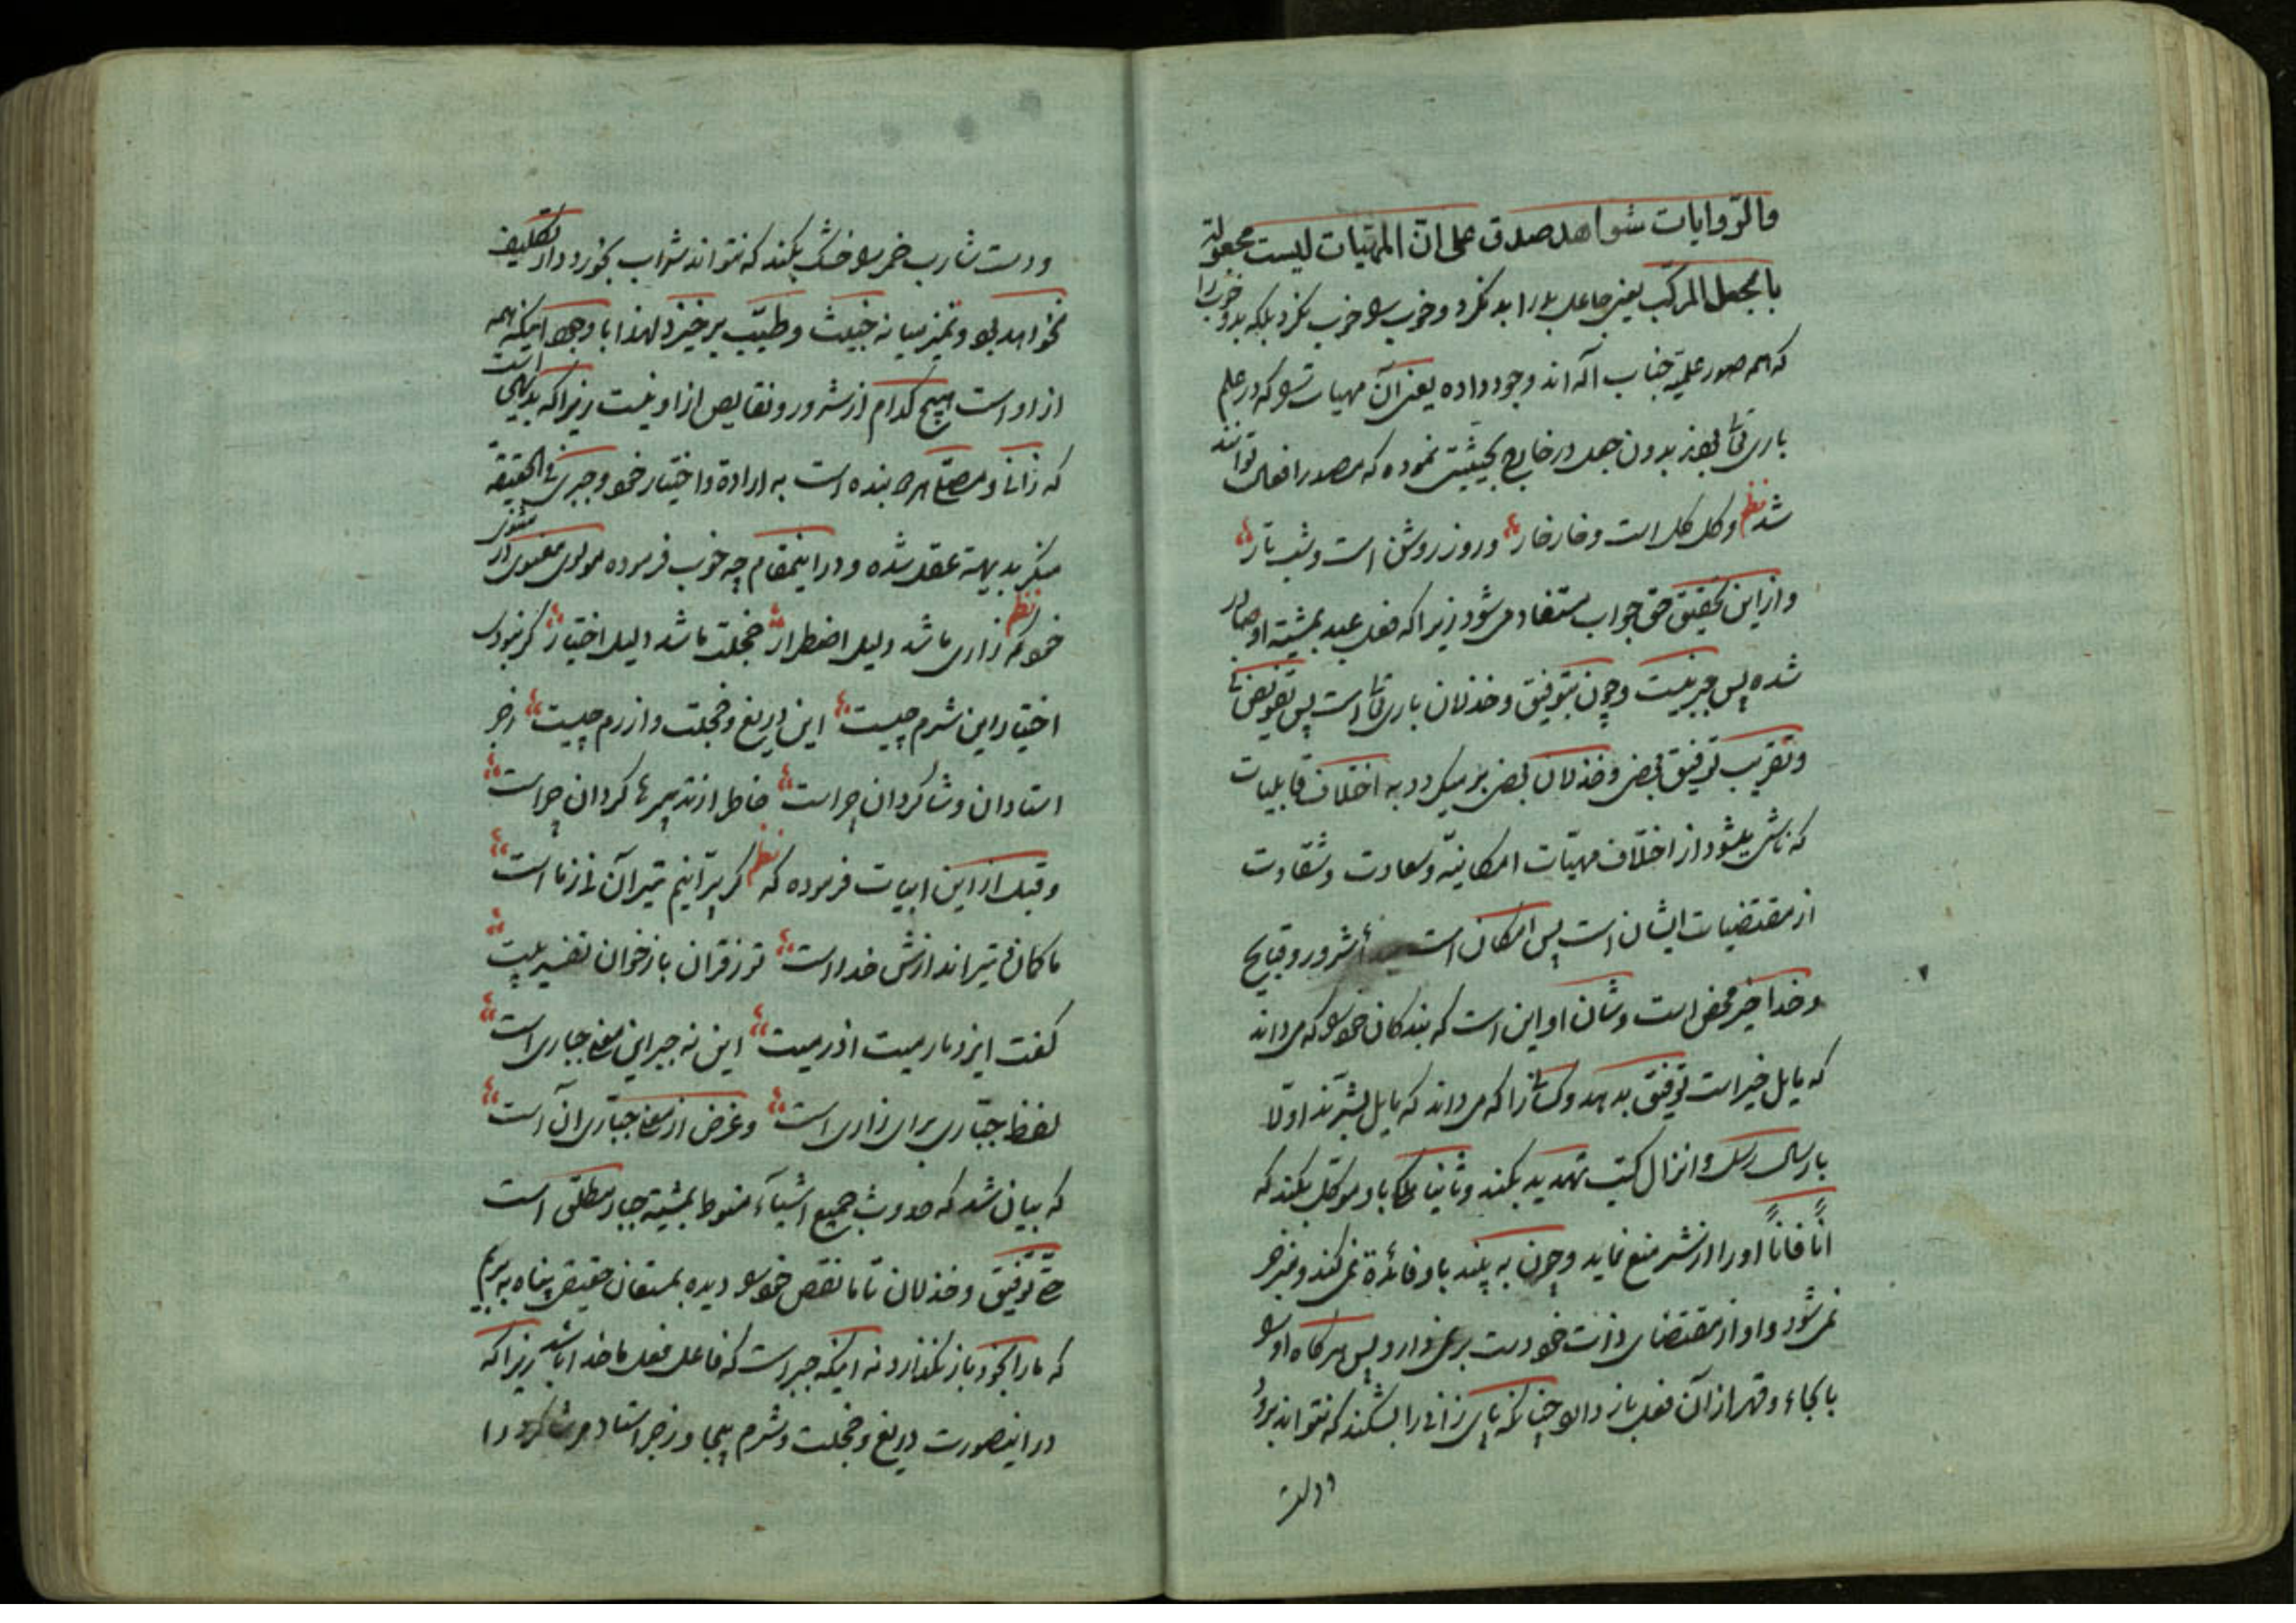 والرّوایات شواهد صدق علی انّ المهیّات لیست مجعولة
بالجعل المرکّب یعنی جاعل بد را بد نکرد و خوب را خوب نکرد بلکه بد و خوب را
که هم صور علمیّه جناب اله اند وجود داده یعنی آن مهیات را که در علم
باری تعالی بودند بدون جعل در خارج بحیثیتی نموده که مصدر افعال توانند
شد نظم وگل گل است و خار خار و روز روشن است و شب تار
و از این تحقیق حق جواب مستفاد می شود زیرا که فعل عبد بمشیّة او صادر
شده پس جبر نیست و چون بتوفیق و خذلان باری تعالی است پس تفویض نه
و تقریب توفیق بعضی و خذلان بعضی بر میگردد به اختلاف قابلیات
که ناشی میشود از اختلاف مهیّات امکانیّه و سعادت و شقاوت
از مقتضیات ایشان است پس امکان است منشأ شرور و قبایح
و خدا خیر محض است و شان او این است که بندکان خود را که می داند
که مایل خیر است توفیق بدهد و کسانی را که می داند که مایل بشرّند اولا
بارسال رسل و انزال کتب تهدید بکند و ثانیا ملکا باو موکّل بکند که
اناً فاناً او را از شر منع نماید و چون به بیند باو فائدة نمی کند و منزجر
نمی شود و او از مقتضای ذات خود دست بر نمی دارد پس هر کاه او را
بالجاء و قهر از آن فعل باز دارد چنانکه پای زانی را بشکند که نتواند برود
و دست
و دست شارب خمر را خشک بکند که نتواند شراب بخورد دار تکلیف
نخواهد بود و تمیز میانه خبیث و طیّب بر خیزد لهذا با وجود اینکه همه
از او است هیچ کدام از شرور و نقایص از او نیست زیرا که بدیهی است
که زانی و مصلّی هر دو بنده است به ارادة و اختیار خود و جبری فی الحقیقه
منکر بدیهة عقل شده و در اینمقام چه خوب فرموده مولوی معنوی در مثنوی
خود که نظم زاری ما شد دلیل اضطرار خجلت ما شد دلیل اختیار گر نبودی
اختیار این شرم چیست این دریغ و خجلت و ازرم چیست زجر
استادان و شاکردان چراست خاطر از تدبیرها کردان چراست
و قبل از این ابیات فرموده که نظم گر بپرّانیم تیر آن نی ز ما است
ما کمان و تیر اندازش خدا است تو ز قران باز خوان تفسیر بیت
کفت ایزد ما رمیت اذ رمیت این نه جبر این معنی جباری است
لفظ جبّاری برای زاری است و غرض از معنی جبّاری آن است
که بیان شد که حدوث جمیع اشیآء منوط بمشیّة جبار مطلق است
حتی توفیق و خذلان تا ما نقص خود را دیده بمستعان حقیقی پناه به بریم
که ما را بخود باز نکذارد نه اینکه جبر است که فاعل فعل ما خدا باشد زیرا که
در اینصورت دریغ و خجلت و شرم بیجا و زجر استاد مر شاکرد را